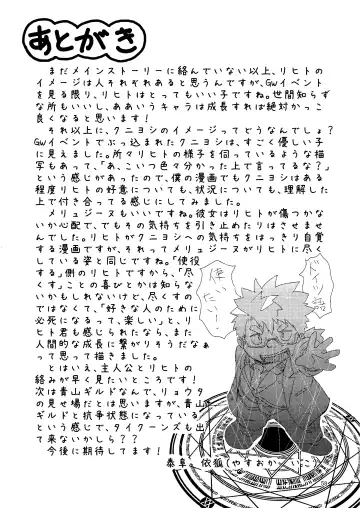 あとがき
まだメインストーリーに絡んでいない以上、リヒトの
イメージは人それぞれあると思うんですが、GWイベント
を見る限り、リヒトはとってもいい子ですね。世間知らず
な所もいいし、ああいうキャラは成長すれば絶対かっこ
良くなると思います!
それ以上に、クニヨシのイメージってどうなんでしょ?
GWイベントでぶっ込まれたクニヨシは、すごく優しい子
に見えました。所々リヒトの様子を伺っているような描
写もあって、「あ、こいつ色々分かった上で言ってるな?」
という感じがあったので、僕の漫画でもクニヨシはある
程度リヒトの好意についても、状況についても、理解した
上で付き合ってる感じにしてみました。
メリュジーヌもいいですね。彼女はリヒトが傷つかな
いか心配で、でもその気持ちを引き止めたりはさせませ
んでした。リヒトがクニヨシへの気持ちをはっきり自覚
する漫画ですが、それってメリュジーヌがリヒトに尽く
している姿と同じですね。「使役
する」側のリヒトですから、「尽
くす」ことの喜びとかは知らな
いかもしれないけど、尽くすの
ではなくて、「好きな人のために
必死になるって、楽しい」と、リ
ヒト君も感じられたなら、また
人間的な成長に繋がりそうだなぁ
って思って描きました。
とはいえ、主人公とリヒトの
絡みが早く見たいところです!
次は青山ギルドなんで、リョウタ
の見せ場だとは思いますが、青山
ギルドと抗争状態になっている
という感じで、タイクーンズも出
て来ないかしら??
今後に期待してます!
泰阜。依狐(やすおか いこ)